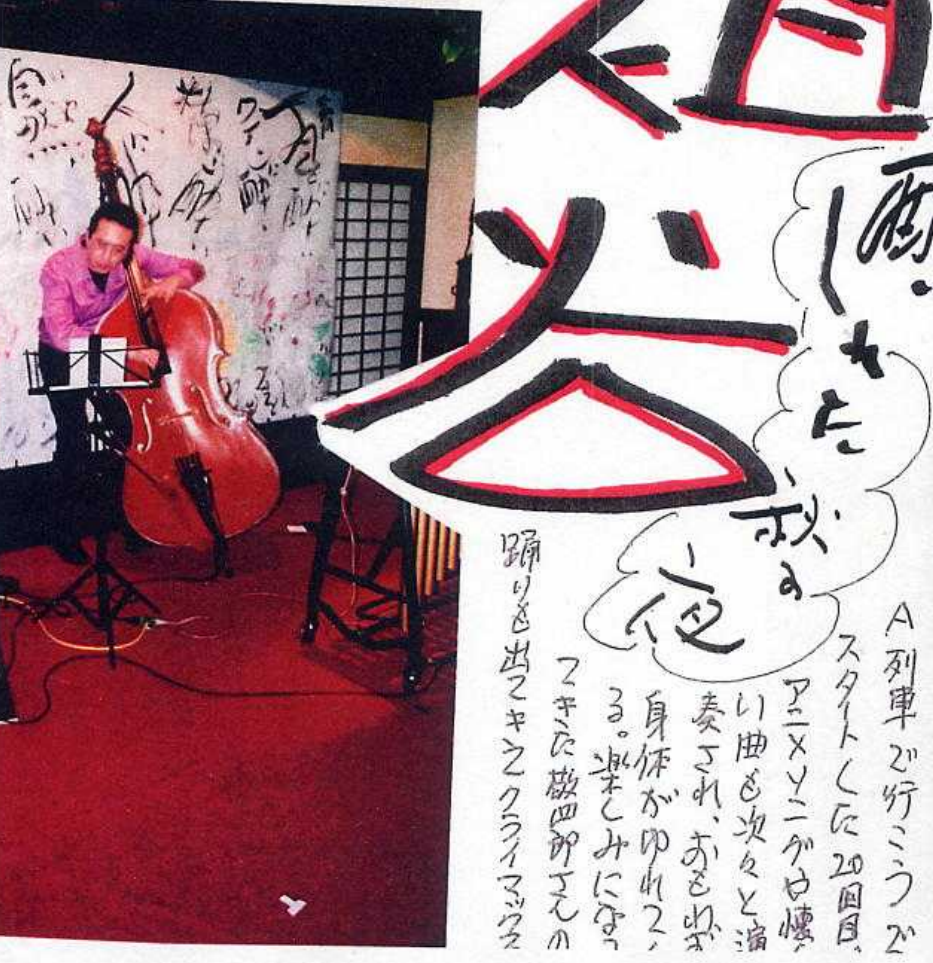 祖谷
酔いしれた、秋の夜
A列車で行こうで
スタートした20回目、
アニメソングや懐
い曲も次々と演
奏され、おもわず
身体がゆれて
る。楽しみになっ
てきた敬四郎さんの
踊りも出てきてクライマックス
ワインに酔い
料理に酔い
人に酔い